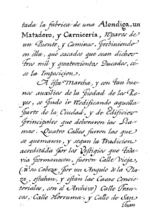 tada la fabrica de una Alondiga, un
Matadero, y Carniceria, Reparos de
un Puente, y Caminos. Prebiniendo
en ella, que sacados que sean dichos
tres mil, y quatrocientos Ducados, cese
la Imposicion.
A esta Marcha, y con tan bue-
nos auxilios de la Piedad de los Re-
yes, se fuè Modificando aquella
Parte de la Ciudad, y de Edificios
principales que adornaron las Li-
neas. Quatro Calles fueron las que
se quemaron, y segun la Tradicion
acreditada por los Vestigios que toda-
via permanecen, fueron Calle Vieja,
(cuya Cabeza, por un Angulo de la Pla-
za, estaban, y estan las Casas Consis-
toriales, con el Archivo) Calle Fran-
cos, Calle Herreria, y Calle de San
Juan